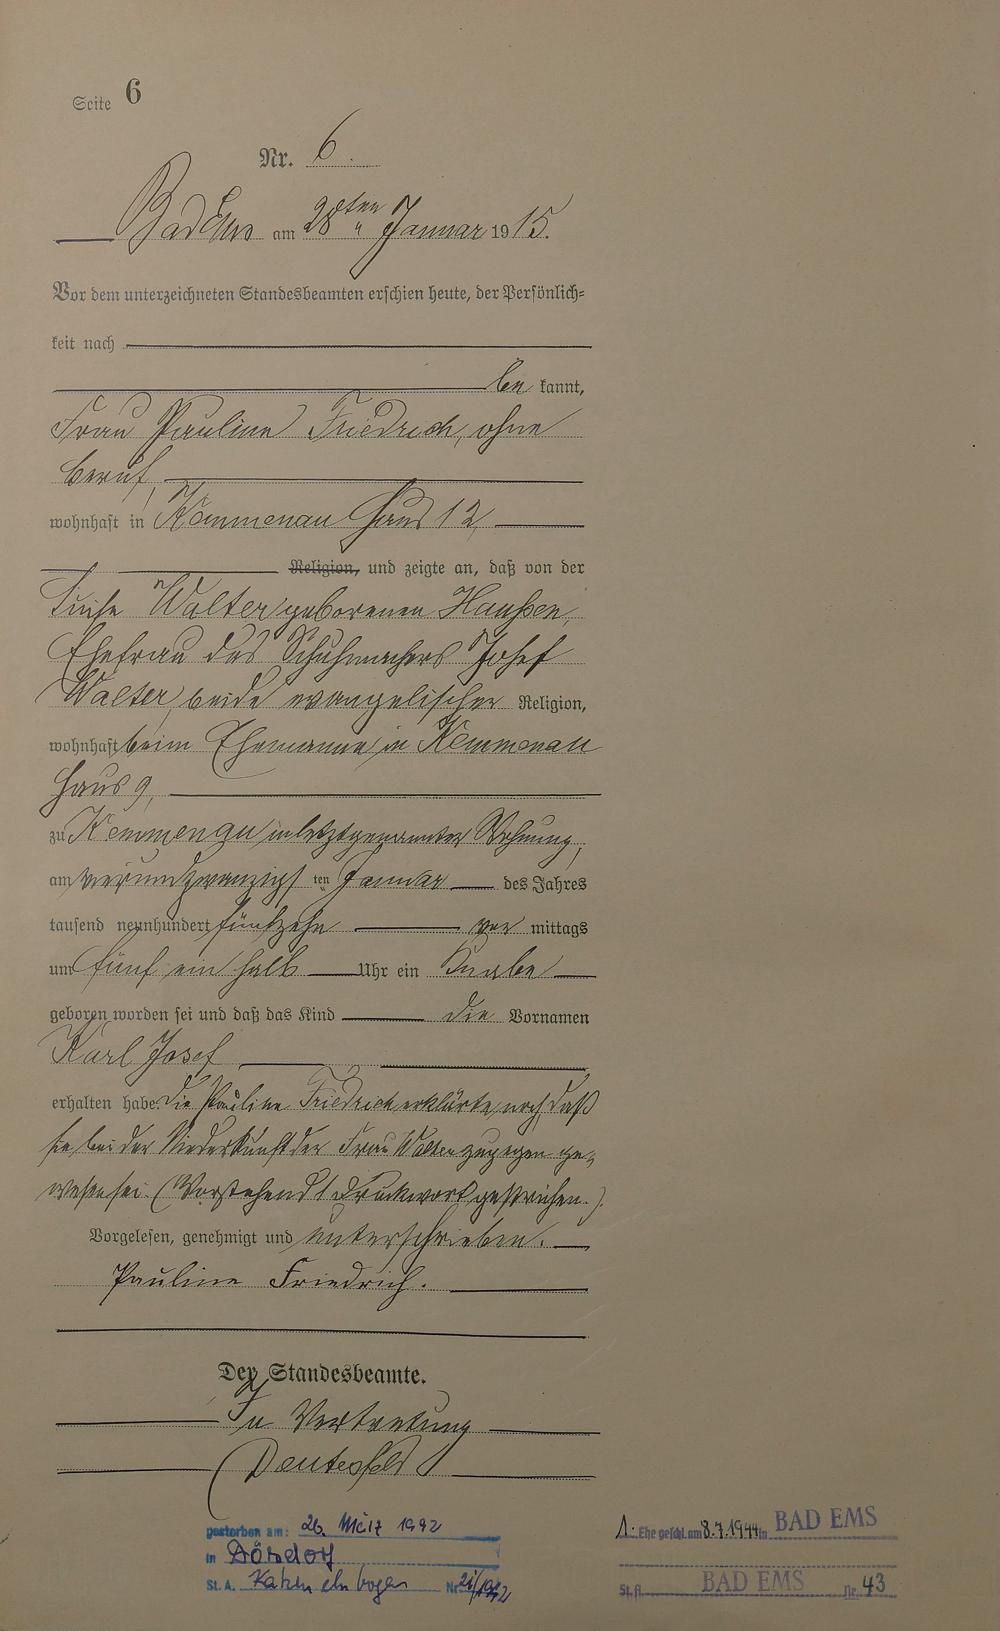 Seite 6
Nr. 6.
Bad Ems am 28ten Januar 1915.
Vor dem unterzeichneten Standesbeamten erschien heute, der Persönlich-
keit nach
be kannt,
Frau Pauline Friedrich, ohne
Beruf,
wohnhaft in Kemmenau Haus 12,
Religion, und zeigte an, daß von der
Luise Walter geborenen Haußen,
Ehefrau des Schuhmachers Josef
Walter, beide evangelischer Religion,
wohnhaft beim Ehemanne in Kemmenau
Haus 9,
zu Kemmenau in letztgenannter Wohnung,
am vierundzwanzigsten Januar des Jahres
tausend neunhundert fünfzehn vor mittags
um fünf ein halb Uhr ein Knabe
geboren worden sei und daß das Kind die Vornamen
Karl Josef
erhalten habe. Die Pauline Friedrich erklärte noch, daß
sie bei der Niederkunft der Frau Walter zugegen ge-
wesen sei. (Vorstehend 1 Druckwort gestrichen.).
Vorgelesen, genehmigt und unterschrieben.
Pauline Friedrich.
Der Standesbeamte.
In Vertretung
gestorben am: 26. März 1992
in Dörsdorf
St. A. Katzenelnbogen Nr. 21/1992
1. Ehe geschl. am 8.7.1944 in BAD EMS
St. A. BAD EMS Nr. 43